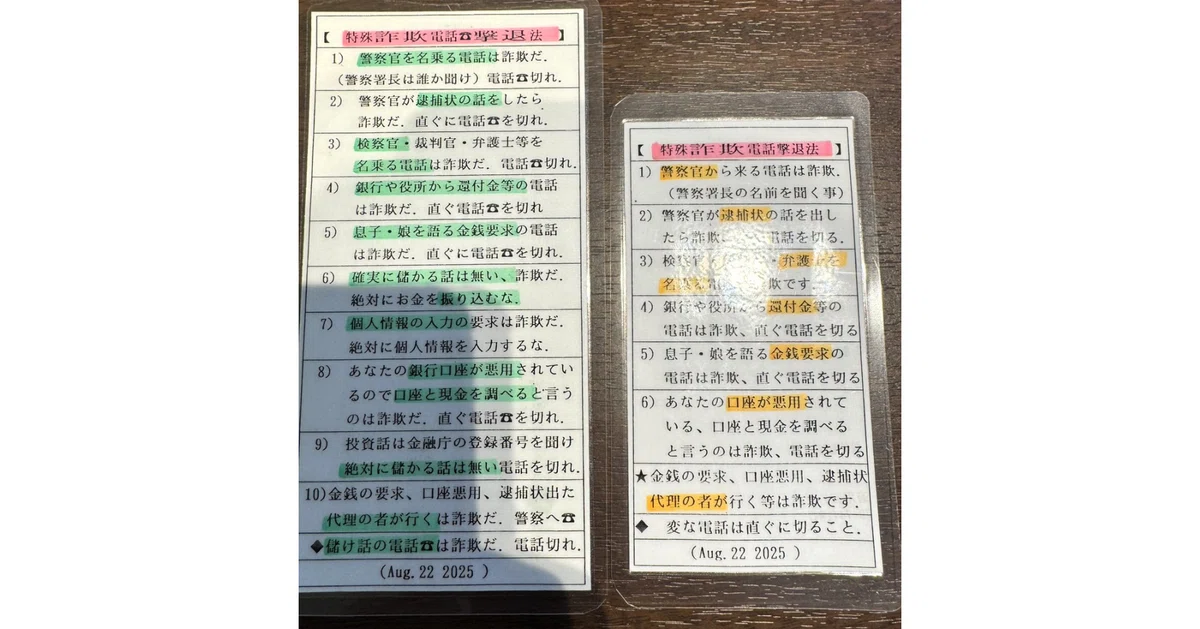 【 特殊詐欺電話☎撃退法 】
1) 警察官を名乗る電話は詐欺だ.
(警察署長は誰か聞け) 電話☎切れ.
2) 警察官が逮捕状の話をしたら
詐欺だ. 直ぐに電話☎を切れ.
3) 検察官・裁判官・弁護士等を
名乗る電話は詐欺だ. 電話☎切れ.
4) 銀行や役所から還付金等の電話
は詐欺だ. 直ぐ電話☎を切れ
5) 息子・娘を語る金銭要求の電話
は詐欺だ. 直ぐに電話☎を切れ.
6) 確実に儲かる話は無い、詐欺だ.
絶対にお金を振り込むな.
7) 個人情報の入力の要求は詐欺だ.
絶対に個人情報を入力するな.
8) あなたの銀行口座が悪用されてい
るので口座と現金を調べると言う
のは詐欺だ. 直ぐ電話☎を切れ.
9) 投資話は金融庁の登録番号を聞け
絶対に儲かる話は無い電話を切れ.
10)金銭の要求、口座悪用、逮捕状出た
代理の者が行くは詐欺だ. 警察へ☎
◆儲け話の電話☎は詐欺だ. 電話切れ.
(Aug.22 2025 )
【 特殊詐欺電話撃退法 】
1) 警察官から来る電話は詐欺.
(警察署長の名前を聞く事)
2) 警察官が逮捕状の話を出し
たら詐欺 電話を切る.
3) 検 ・弁護士を
名乗 欺です.
4) 銀行や役所から還付金等の
電話は詐欺、直ぐ電話を切る
5) 息子・娘を語る金銭要求の
電話は詐欺、直ぐ電話を切る
6) あなたの口座が悪用されて
いる、口座と現金を調べる
と言うのは詐欺、電話を切る
★金銭の要求、口座悪用、逮捕状
代理の者が行く等は詐欺です.
◆ 変な電話は直ぐに切ること.
(Aug.22 2025 )